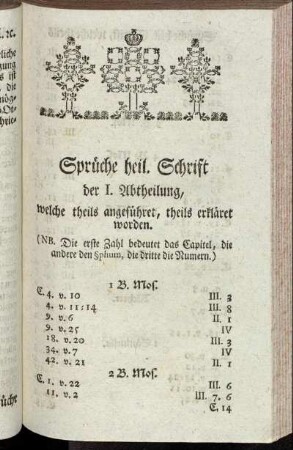 Sprüche heil. Schrift
der I. Abtheilung,
welche theils angeführet, theils erkläret
worden.
(NB. Die erste Zahl bedeutet das Capitel, die
andere den §phum, die dritte die Numern.)
1 B. Mos.
C. 4. v. 10 III. 3
4. v. 11:14 III. 8
9. v. 6 II. 1
9. v. 25 IV
18. v. 20 III. 3
34. v. 7 IV
42. v. 21 II. 1
2 B. Mos.
C. 1. v. 22 III. 6
11. v. 2 III. 7. 6
C. 14